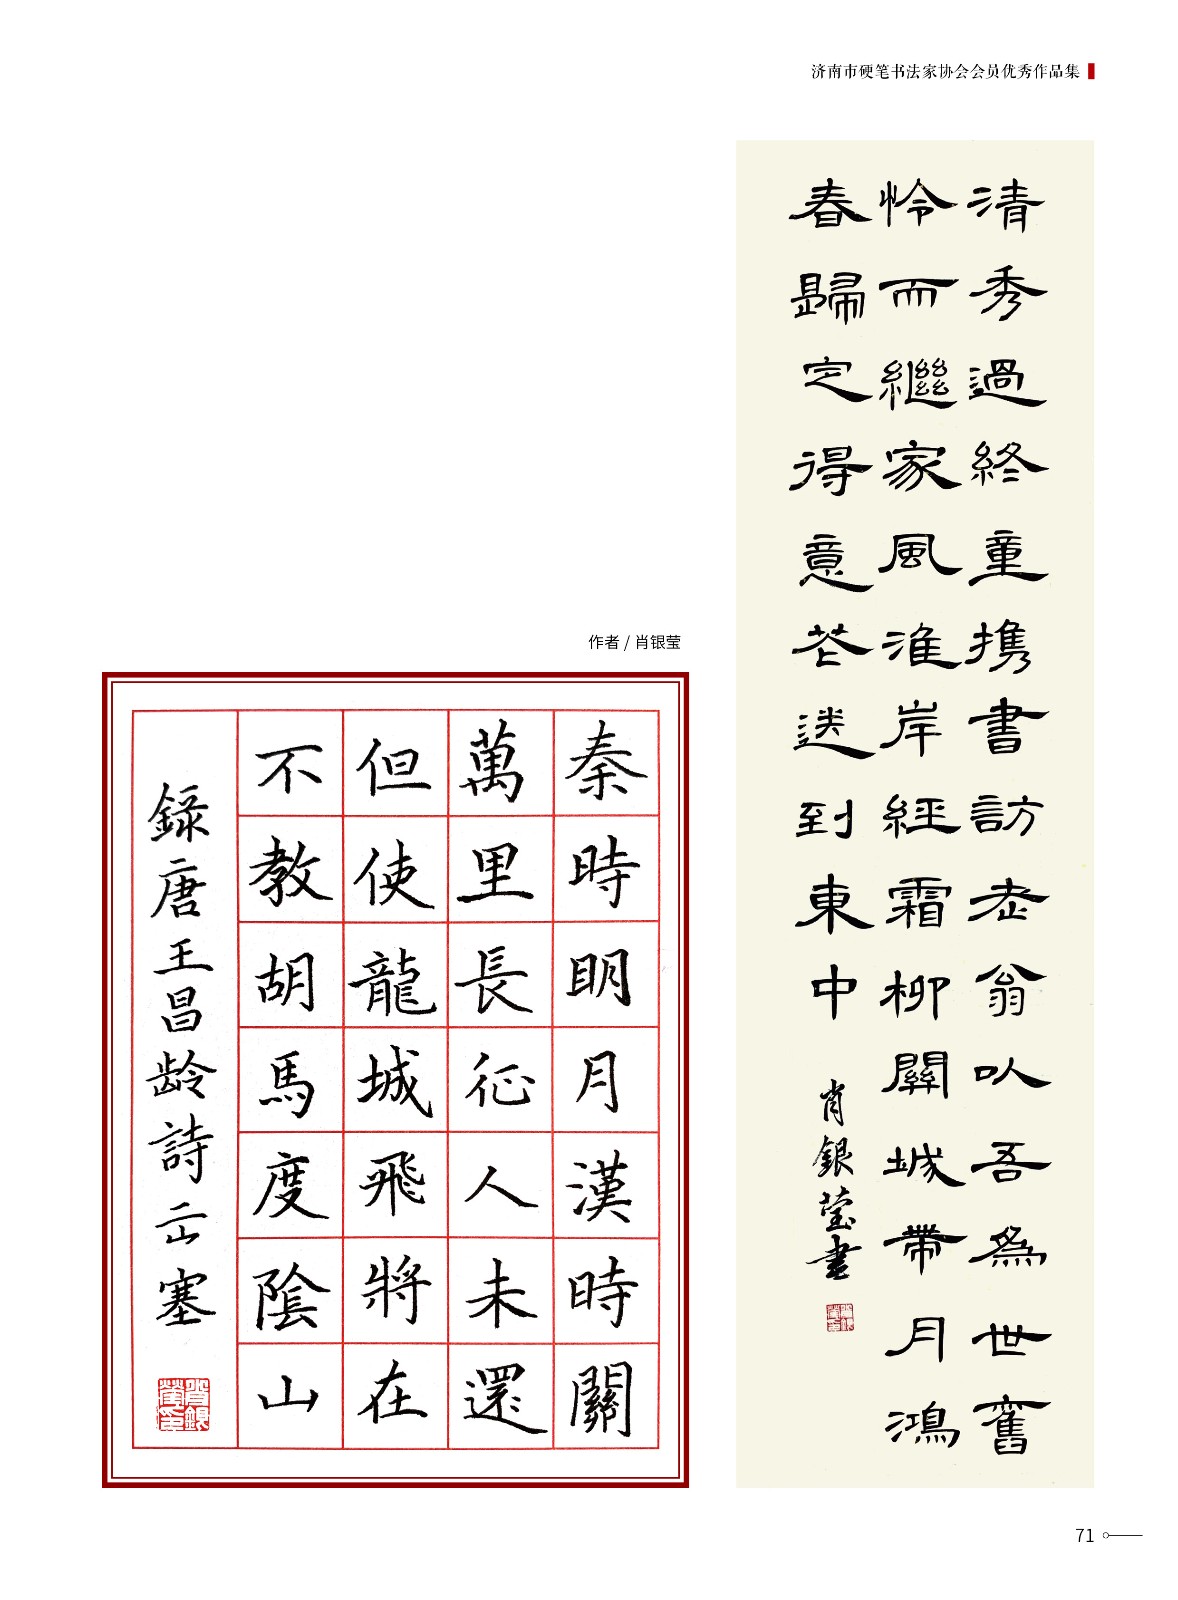 济南市硬笔书法家协会会员优秀作品集
清秀過終童携書訪老翁以吾為世舊
怜而繼家風淮岸經霜柳關城帶月鴻
春歸定得意花送到東中
肖銀莹書
作者 / 肖银莹
秦時眀月漢時關
萬里長征人未還
但使龍城飛將在
不教胡馬度陰山
録唐王昌龄詩出塞
71